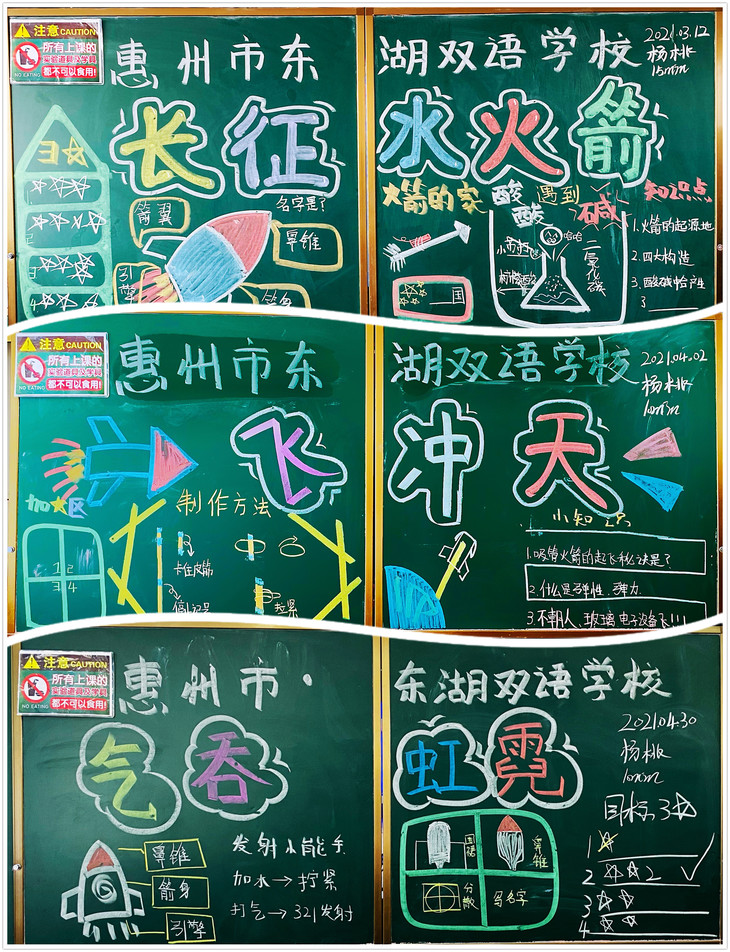 注意 CAUTION
所有上课的
实验道具及学具
都不可以食用!
NO EATING
惠州市东
湖双语学校
2021.03.12
杨桃
15min
长征
水火箭
3
箭翼
名字是?
鼻锥
引擎
箭身
火箭的家
国
酸
酸
遇到
碱
哈哈
二氧化碳
柠檬酸
知识点
1.火箭的起源地
2.四大构造
3.酸碱中合产生
3
4
注意 CAUTION
所有上课的
实验道具及学具
都不可以食用!
NO EATING
惠州市东
湖双语学校
2021.04.02
杨桃
10min
飞
冲天
加 区
1 2
3 4
制作方法
卡住皮筋
拉紧
小知识
1.吸管火箭的起飞秘诀是?
2.什么是弹性、弹力
3.不朝人、玻璃、电子设备飞!!!
注意 CAUTION
所有上课的
实验道具及学具
都不可以食用!
NO EATING
惠州市·
东湖双语学校
2021.04.30
杨桃
10min
气吞
虹霓
鼻锥
箭身
引擎
发射小能手
加水→拧紧
打气→321发射
鼻锥
分散
写名字
目标3
1
2 2
3
4